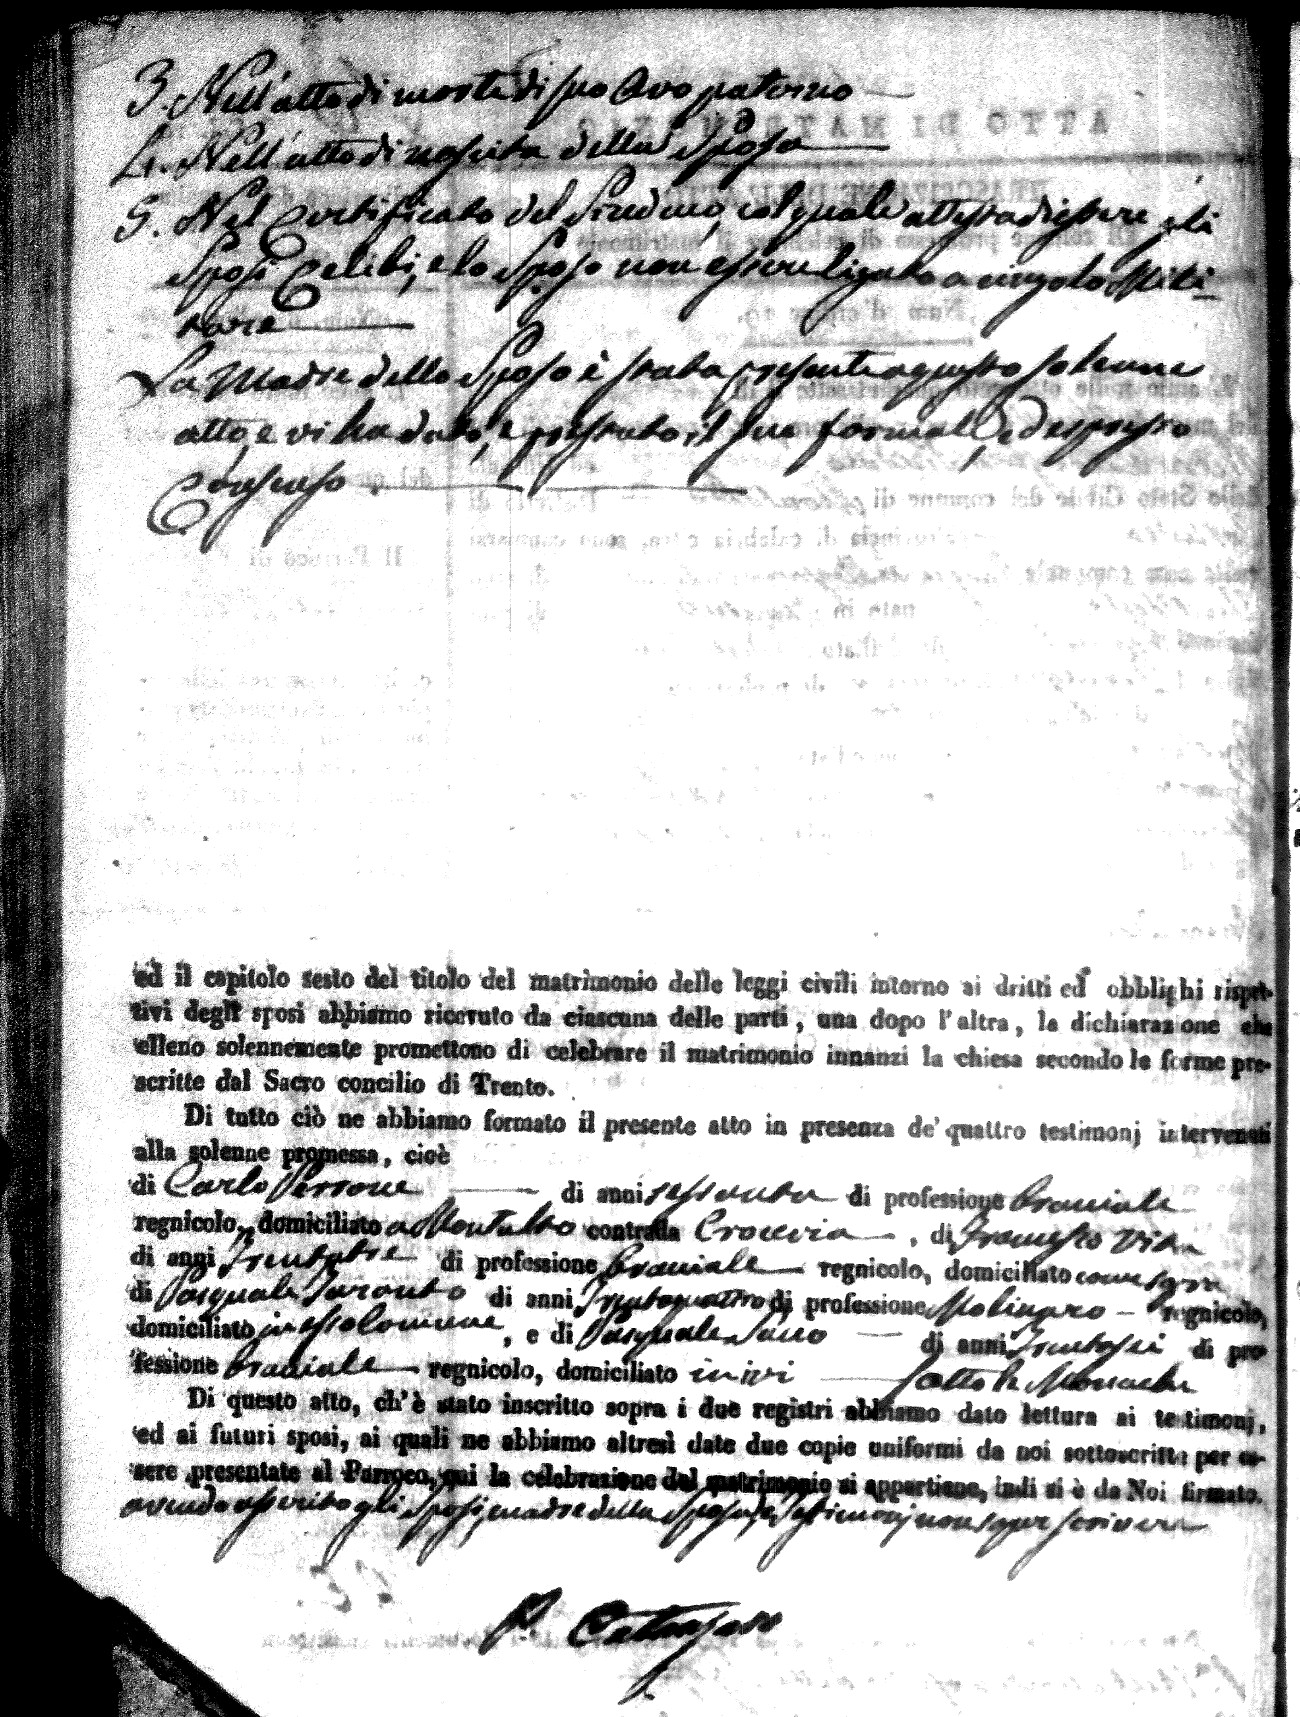 3. Nell'atto di morte di suo Avo paterno
4. Nell'atto di nascita della Sposa
5. Nel Certificato del Sindaco, col quale attesta di essere gli
Sposi Celibi, e lo Sposo non essere ligato a cingolo Mili
tare
La Madre dello Sposo è stata presente a questo solenne
atto, e vi ha dato, e prestato il suo formale, ed espresso
Consenso
ed il capitolo sesto del titolo del matrimonio delle leggi civili intorno ai dritti ed obblighi rispet-
tivi degli sposi abbiamo ricevuto da ciascuna delle parti, una dopo l'altra, la dichiarazione che
elleno solennemente promettono di celebrare il matrimonio innanzi la chiesa secondo le forme pre-
scritte dal Sacro concilio di Trento.
Di tutto ciò ne abbiamo formato il presente atto in presenza de' quattro testimonj intervenuti
alla solenne promessa, cioè
di Carlo Perrone di anni sessanta di professione Braciale
regnicolo, domiciliato a Montalto contrada Crocevia, di Francesco Vita
di anni Trentatre di professione Braciale regnicolo, domiciliato come sopra
di Pasquale Taranto di anni Trentaquattro di professione Molinaro regnicolo,
domiciliato in, e di Pasquale di anni Trentasei di pro-
fessione braciale regnicolo, domiciliato in ivi
Di questo atto, ch'è stato inscritto sopra i due registri abbiamo dato lettura ai testimonj,
ed ai futuri sposi, ai quali ne abbiamo altresì date due copie uniformi da noi sottoscritte per es-
sere presentate al Parroco, cui la celebrazione del matrimonio si appartiene, indi si è da Noi firmato.
avendo asserito gli Sposi, madre dello Sposo, e Testimonj non saper scrivere